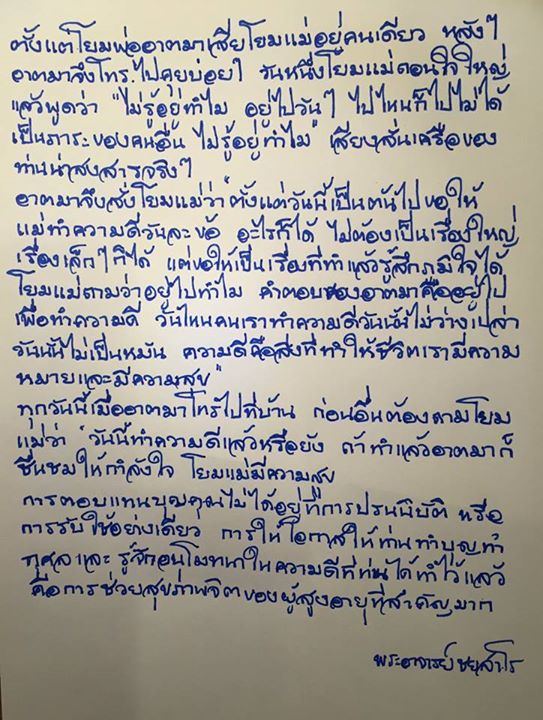 ตั้งแต่โยมพ่ออาตมาเสียโยมแม่อยู่คนเดียว หลังๆ
อาตมาจึงโทร.ไปคุยบ่อยๆ วันหนึ่งโยมแม่ถอนใจใหญ่
แล้วพูดว่า "ไม่รู้อยู่ทำไม อยู่ไปวันๆ ไปไหนก็ไปไม่ได้
เป็นภาระของคนอื่น ไม่รู้อยู่ทำไม" เสียงสั่นเครือของ
ท่านน่าสงสารจริงๆ
อาตมาจึงสั่งโยมแม่ว่า "ตั้งแต่วันนี้เป็นต้นไปขอให้
แม่ทำความดีวันละข้อ อะไรก็ได้ ไม่ต้องเป็นเรื่องใหญ่
เรื่องเล็กๆก็ได้ แต่ขอให้เป็นเรื่องที่ทำแล้วรู้สึกภูมิใจได้
โยมแม่ถามว่าอยู่ไปทำไม คำตอบของอาตมาคืออยู่ไป
เพื่อทำความดี วันไหนคนเราทำความดีวันนั้นไม่ว่างเปล่า
วันนั้นไม่เป็นหมัน ความดีคือสิ่งที่ทำให้ชีวิตเรามีความ
หมายและมีความสุข"
ทุกวันนี้เมื่ออาตมาโทรไปที่บ้าน ก่อนอื่นต้องถามโยม
แม่ว่า "วันนี้ทำความดีแล้วหรือยัง ถ้าทำแล้วอาตมาก็
ชื่นชมให้กำลังใจ โยมแม่มีความสุข
การตอบแทนบุญคุณไม่ได้อยู่ที่การปรนนิบัติ หรือ
การรับใช้อย่างเดียว การให้โอกาสให้ท่านทำบุญทำ
กุศลและ รู้จักอนุโมทนาในความดีที่ท่านได้ทำไว้แล้ว
คือการช่วยสุขภาพจิตของผู้สูงอายุที่สำคัญมาก
พระอาจารย์ชยสาโร